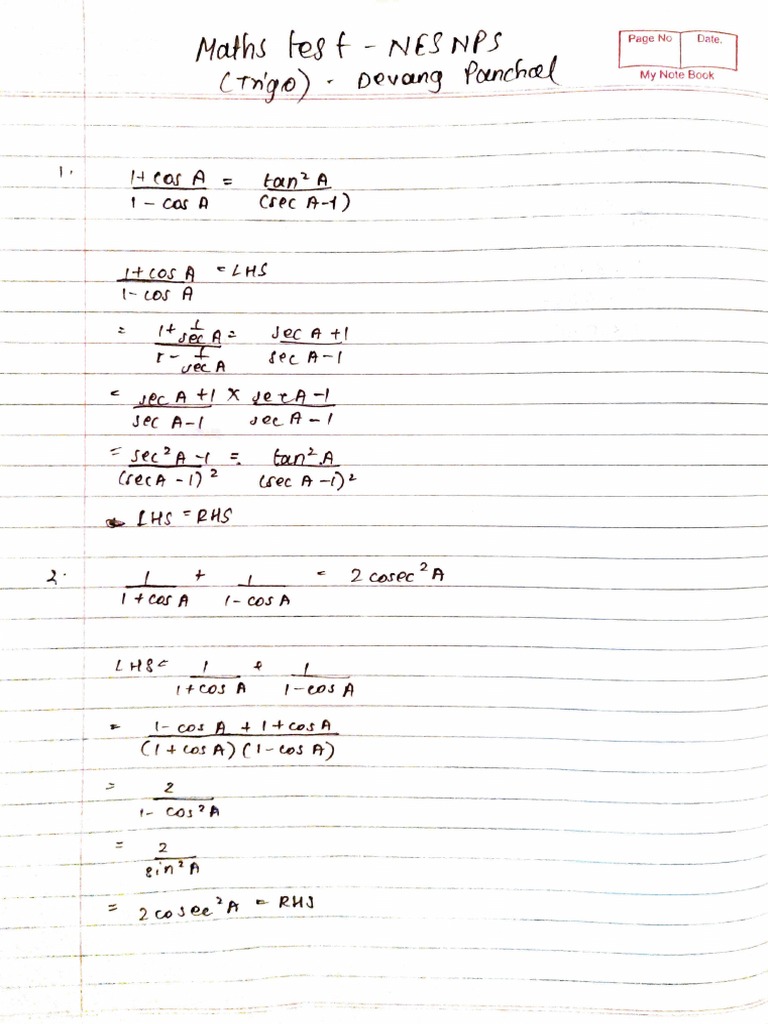 Maths test - NES NPS
(Trigo) - Devang Panchal
Page No Date.
My Note Book
1. (1+cos A)/(1 - cos A) = tan² A/(sec A-1)
(1+cos A)/(1-cos A) = LHS
= (1+ 1/sec A)/(1- 1/sec A) = (sec A +1)/(sec A-1)
= (sec A +1)/(sec A-1) × (sec A-1)/(sec A-1)
= (sec² A -1)/(sec A -1)² = tan² A/(sec A -1)²
LHS = RHS
2. 1/(1+cos A) + 1/(1-cos A) = 2 cosec² A
LHS= 1/(1+cos A) + 1/(1-cos A)
= (1-cos A + 1+cos A)/((1+cos A)(1-cos A))
= 2/(1- cos² A)
= 2/(sin² A)
= 2 cosec² A = RHS